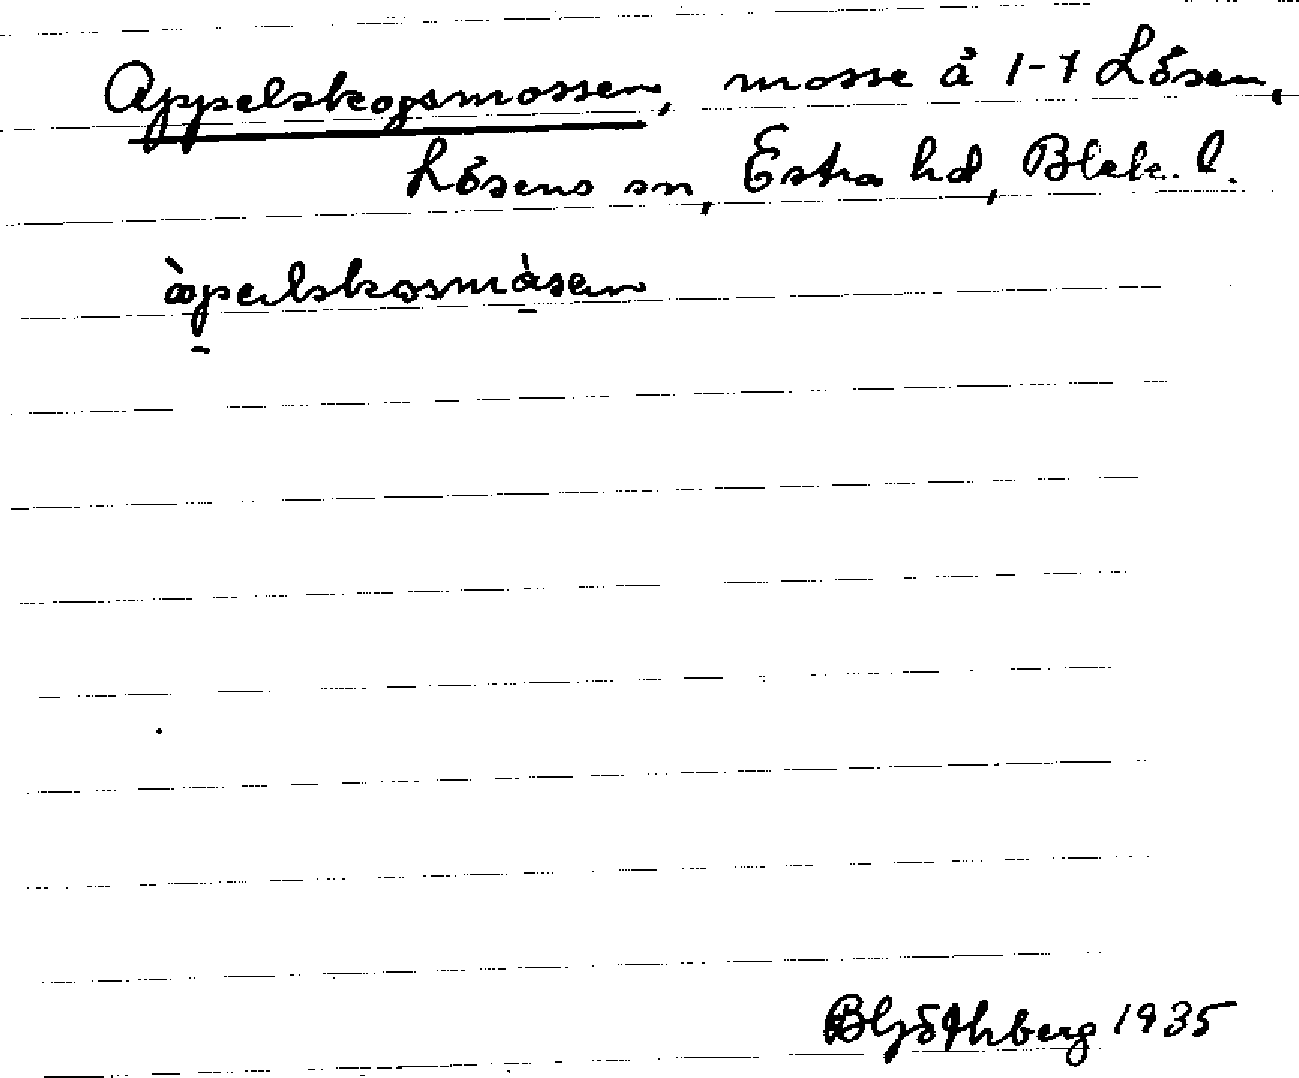 Appelskogsmossen, mosse å 1-7 Lösen,
Lösens sn, Östra hd, Blek. l.
àpelskosmòsen
1935